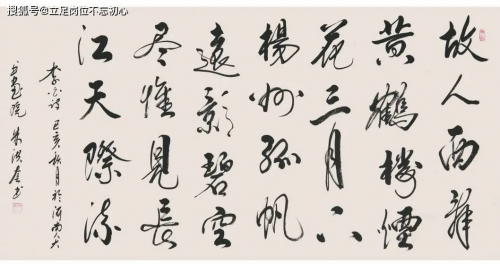 搜狐号@立足岗位不忘初心
故人西辞
黄鶴楼煙
花三月下
楊州孤帆
遠影碧空
尽惟見長
江天際流
李白诗 己亥秋月於河南大
书画院 朱洪